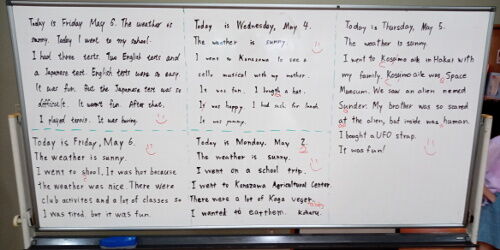 Today is Friday May 6. The weather is
sunny. Today I went to my school.
I had three tests. Two English tests and
a Japanese test. English tests were so easy.
It was fun. But the Japanese test was so
difficult. It wasn't fun. After that,
I played tennis. It was boring.
Today is Wednesday, May 4.
The weather is sunny.
I went to Kanazawa to see a
musical with my mother.
It was fun. I bought a hat.
It was happy. I had sushi for lunch.
It was yummy.
Today is Thursday, May 5.
The weather is sunny.
I went to Kosumo aile in Hakui with
my family. Kosumo aile was Space
Museum. We saw an alien named
Sunder. My brother was so scared
at the alien, but inside was human.
I bought a UFO strap.
It was fun!
Today is Friday, May 6.
The weather is sunny.
I went to shool. It was hot because
the weather was nice. There were
club activites and a lot of classes so
I was tired but it was fun.
Today is Monday, May 2.
The weather is sunny.
I went on a school trip.
I went to Kanazawa Agricultural Center.
There were a lot of Kaga veget
I wanted to eat them.